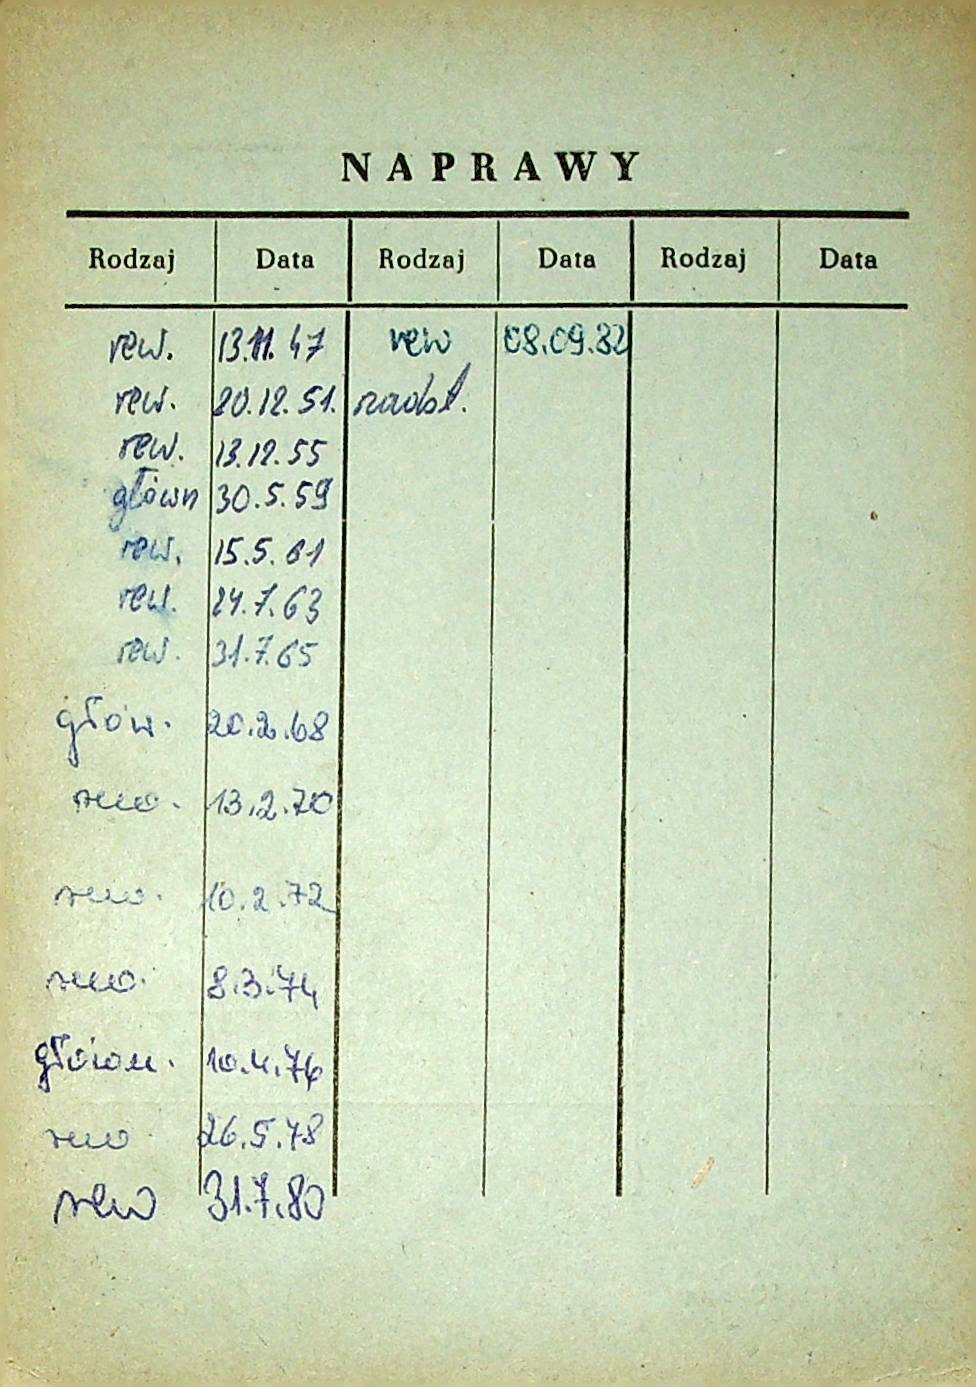 NAPRAWY
Rodzaj Data Rodzaj Data Rodzaj Data
rew. 13.11.47 rew 08.09.82
rew. 20.12.51. nadst.
rew. 13.12.55
główn 30.5.59
rew. 15.5.61
rew. 24.7.63
rew. 31.7.65
głów. 20.2.68
rew. 13.2.70
rew. 10.2.72
rew. 8.3.74
główn. 10.4.76
rew 26.5.78
rew 31.7.80